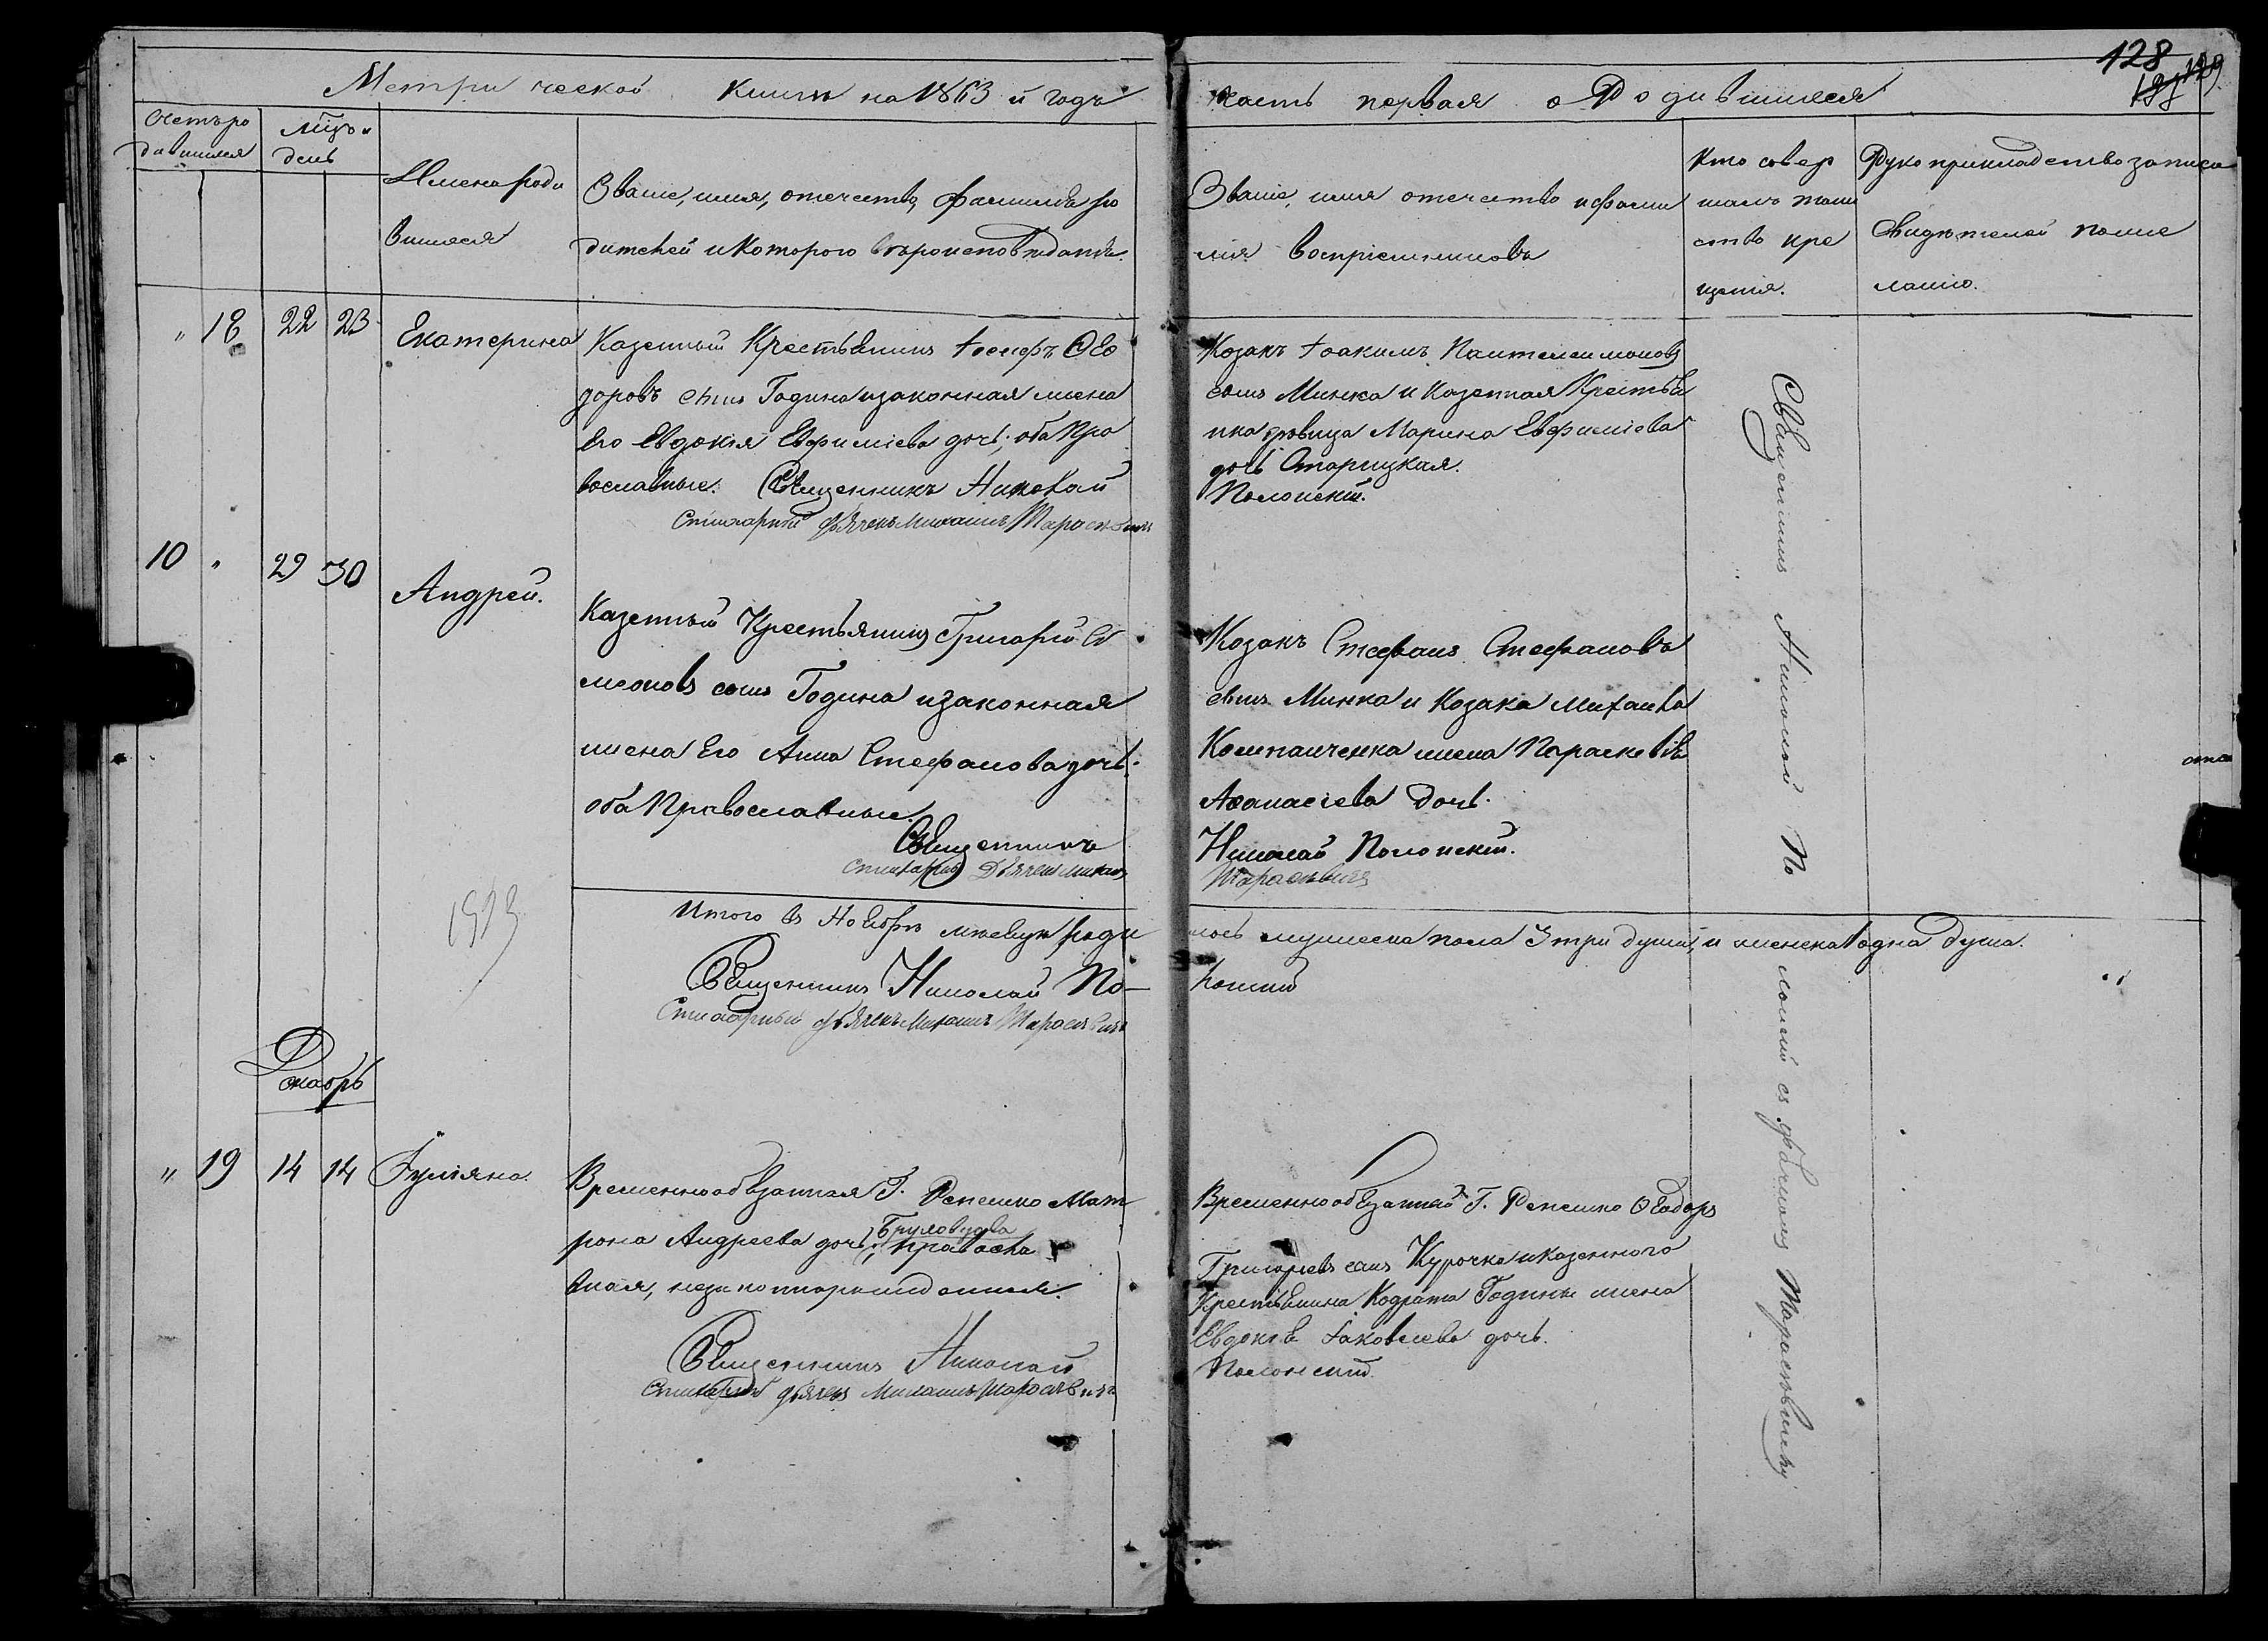 128
129
Метрической книги на 1863 й годъ
часть первая о Родившихся
Счетъ ро
дившихся
Мцъ и
день
Имена роди
вшихся
Званіе, имя, отечество, фамилія ро
дителей и которого вѣроисповѣданія.
Званіе, имя отечество и фами
лія воспріемниковъ
Кто совер
шалъ таин
ство кре
щенія.
Рукоприкладство записа
Свидѣтелей по же
ланію.
" 18 22 23 Екатерина
Казенный Крестьянинъ Іосифъ Ѳео
доровъ сынъ Година и законная жена
его Евдокія Евфиміева дочь; оба Пра
вославные. Священникъ Николай
Стихарный дьячекъ Михаилъ Тарасевичъ
Козакъ Іоакимъ Пантелеимоновъ
сынъ Минка и Казенная Крестья
нка вдовица Марина Евфиміева
дочь Старицкая.
Полонскій.
10 " 29 30 Андрей.
Казенный Крестьянинъ Григорій Си
меоновъ сынъ Година и законная
жена Его Анна Стефанова дочь;
оба Православные.
Священникъ
Стихарный Дьячекъ Михаилъ
Козакъ Стефанъ Стефановъ
сынъ Минка и Козака Михаила
Компанченка жена Параскевія
Аѳанасіева дочь.
Николай Полонскій.
Тарасевичъ
Итого въ Ноябрѣ мѣсяцѣ роди
лось мужеска пола 3 три души, и женска 1 одна душа.
Священникъ Николай По-
лонскій
Стихарный дьячекъ Михаилъ Тарасевичъ
Декабрь
" 19 14 14 Іуліяна.
Временнообязанная Г. Репешко Мат
рона Андреева дочь, Православ
ная, незаконнорожденная.
Священникъ Николай
Стихарный дьячекъ Михаилъ Тарасевичъ
Временнообязанный Г. Репешко Ѳеодоръ
Григорьевъ сынъ Курочка и казенного
Крестьянина Кодрата Годины жена
Евдокія Іаковлева дочь.
Полонскій
Священникъ Николай По
лонскій съ дьячкомъ Тарасевичемъ